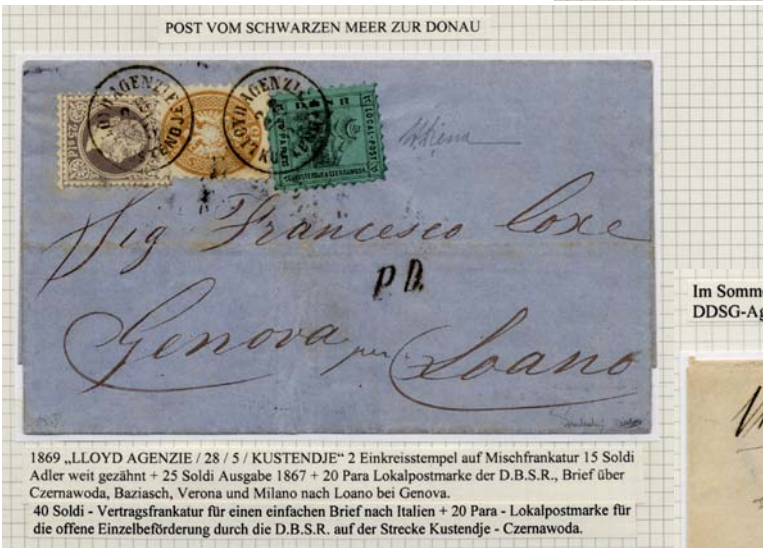 POST VOM SCHWARZEN MEER ZUR DONAU
LLOYD AGENZIE
KUSTENDJE
LLOYD AGENZIE
KUSTENDJE
LOCAL-POST
KUSTENDJE & CZERNAWODA
25 SLD
Sig Francesco Coxe
P.D.
Genova per Loano
Im Somme
DDSG-Ag
1869 „LLOYD AGENZIE / 28 / 5 / KUSTENDJE“ 2 Einkreisstempel auf Mischfrankatur 15 Soldi
Adler weit gezähnt + 25 Soldi Ausgabe 1867 + 20 Para Lokalpostmarke der D.B.S.R., Brief über
Czernawoda, Baziasch, Verona und Milano nach Loano bei Genova.
40 Soldi - Vertragsfrankatur für einen einfachen Brief nach Italien + 20 Para - Lokalpostmarke für
die offene Einzelbeförderung durch die D.B.S.R. auf der Strecke Kustendje - Czernawoda.